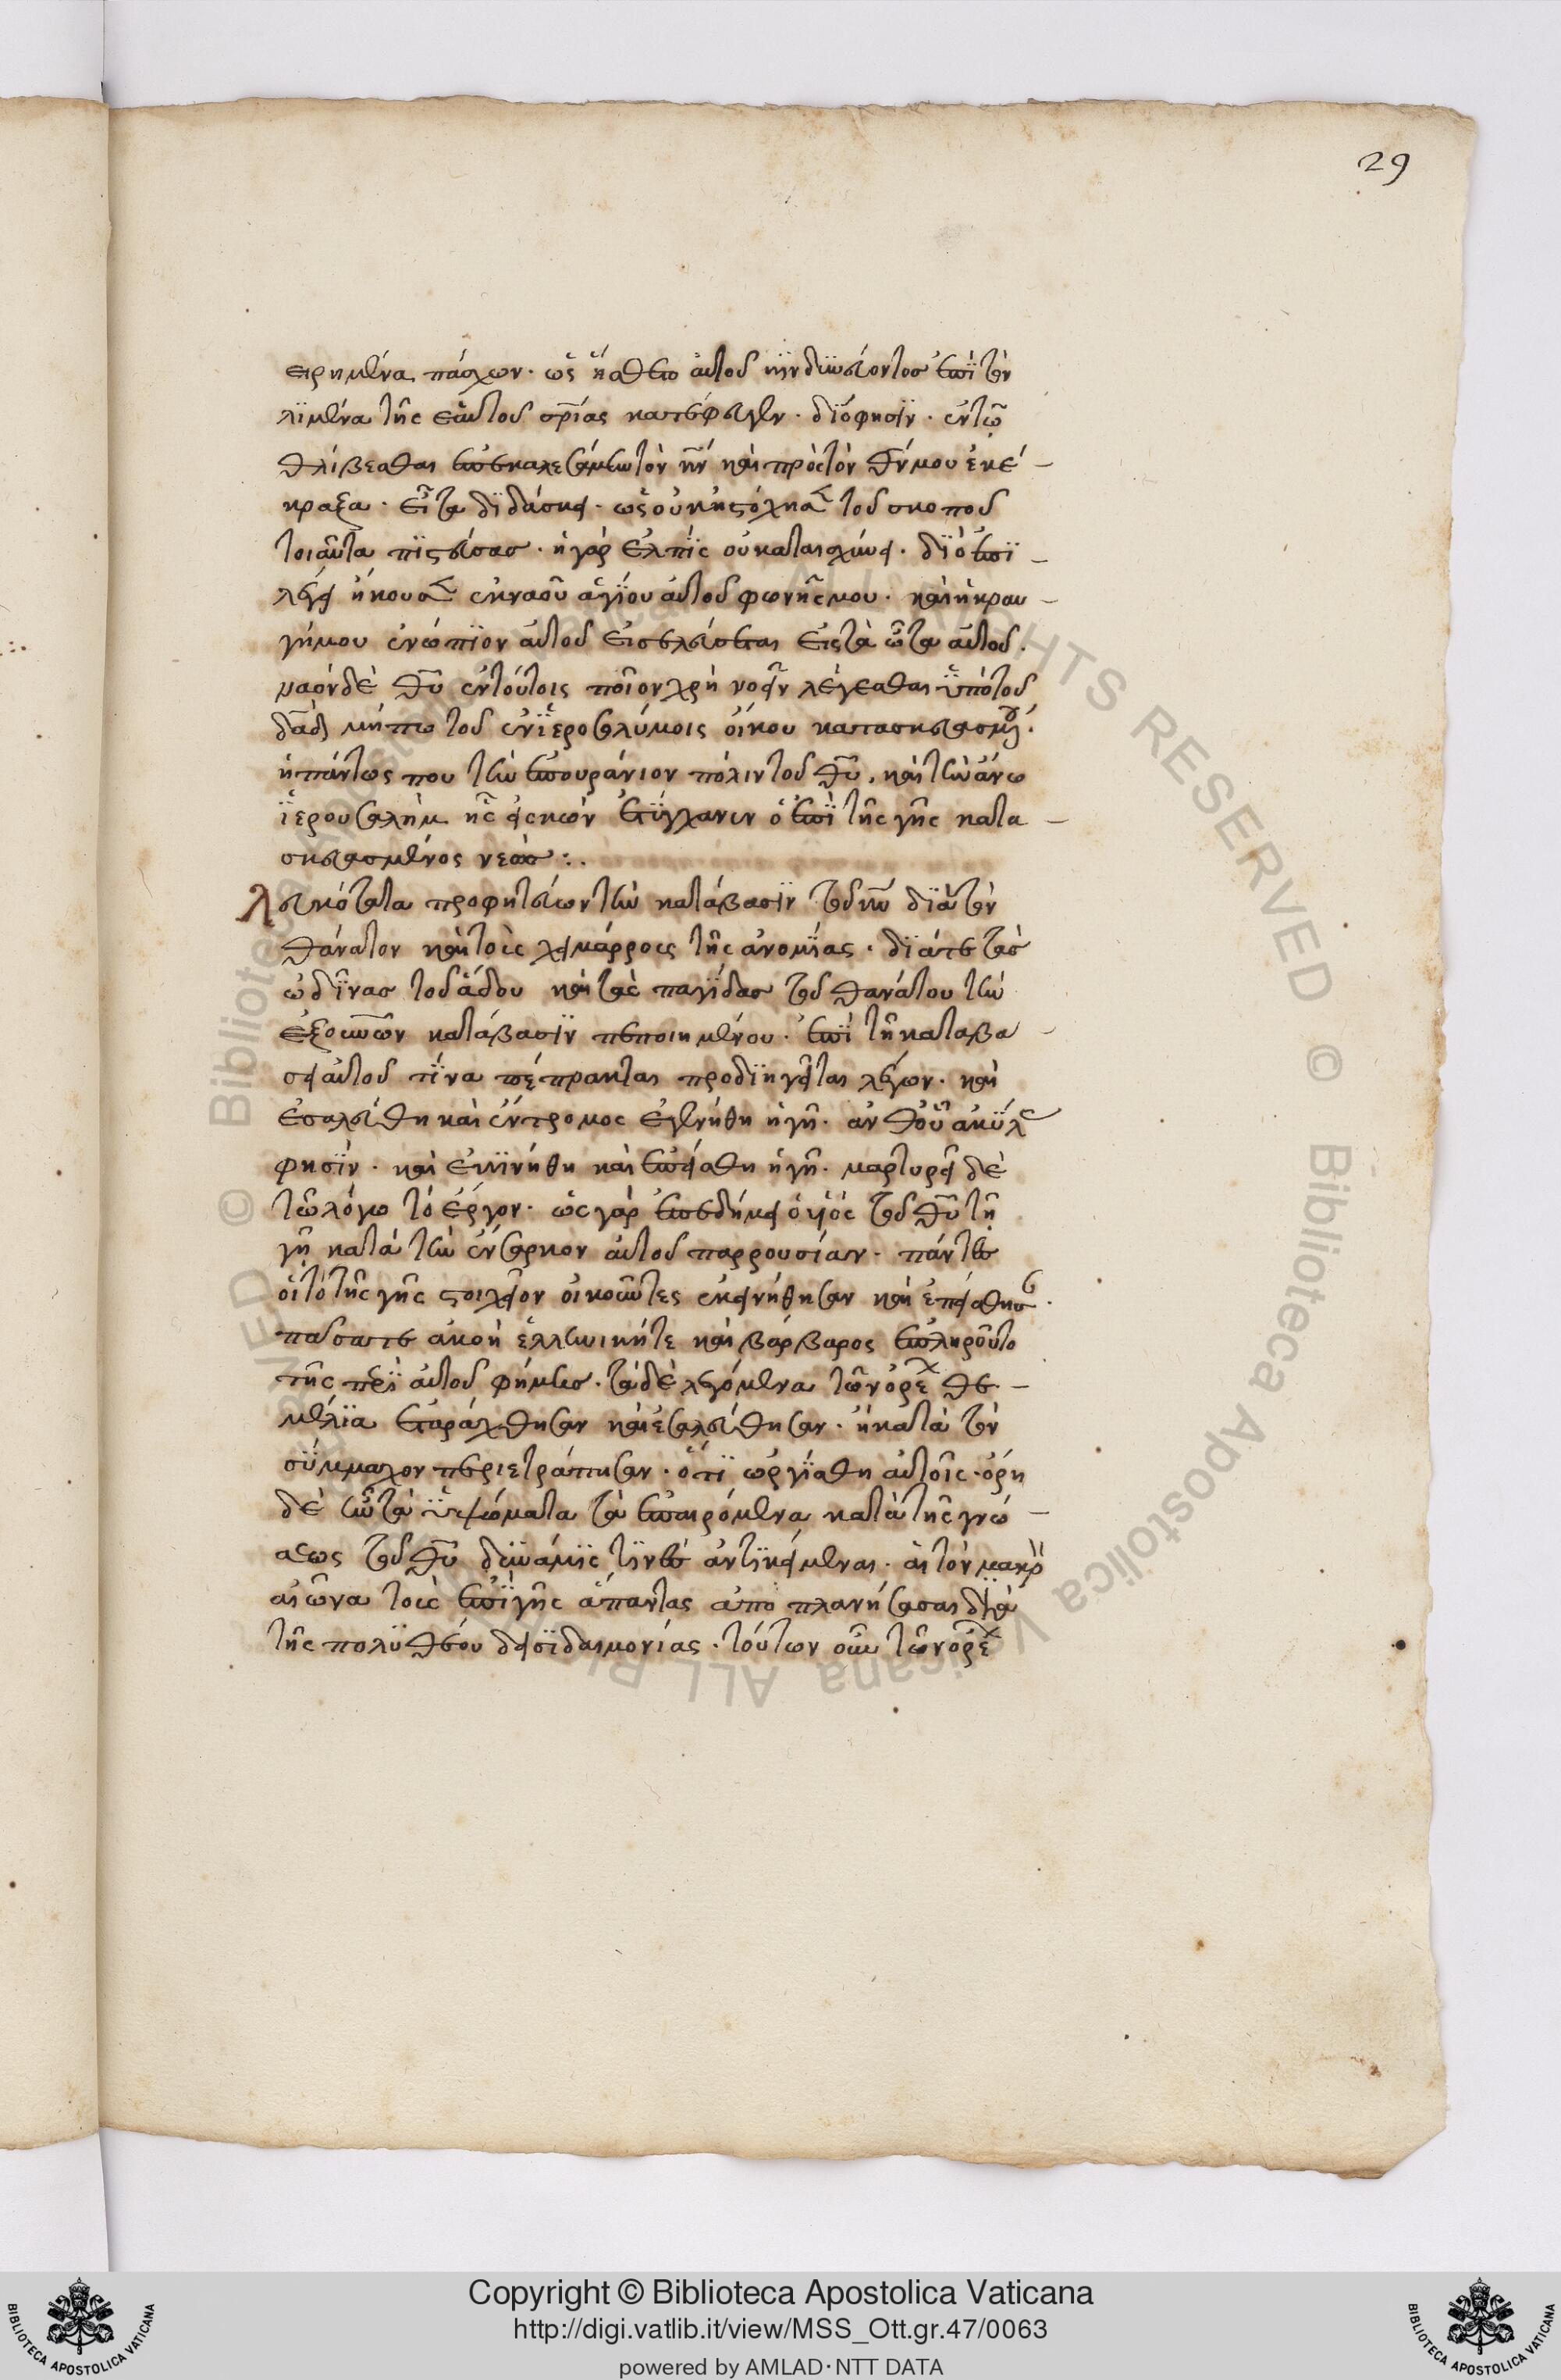 29
εἰρημένα πάσχων· ὡς ᾔσθετο αὐτοῦ κινδυνεύοντος ἐπὶ τὸν
λιμένα τῆς ἑαυτοῦ σρίας κατέφευγεν· διό φησιν· ἐν τῷ
θλίβεσθαι ἐπεκαλεσάμην τὸν κν καὶ πρὸς τὸν θν μου ἐκέ-
κραξα· εἶτα διδάσκει· ὡς οὐκ ἠστόχησε τοῦ σκοποῦ
τοιαῦτα πιστεύσας· ἡ γὰρ ἐλπὶς οὐ καταισχύνει· διὸ ἐπι-
λέγει ἤκουσε ἐκ ναοῦ ἁγίου αὐτοῦ φωνῆς μου· καὶ ἡ κραυ-
γή μου ἐνώπιον αὐτοῦ εἰσελεύσεται εἰς τὰ ὦτα αὐτοῦ·
ναὸν δὲ θυ ἐν τούτοις ποῖον χρὴ νοεῖν λέγεσθαι ὑπὸ τοῦ
δαδ μήπω τοῦ ἐν ἱεροσολύμοις οἴκου κατασκευασμέ·
ἢ πάντως που τὴν ἐπουράνιον πόλιν τοῦ θυ, καὶ τὴν ἄνω
ἱερουσαλὴμ ἧς εἰκὼν ἐτύγχανεν ὁ ἐπὶ τῆς γῆς κατα-
σκευασμένος νεώς:·
λευκότατα προφητεύων τὴν κατάβασιν τοῦ κυ διὰ τὸν
θάνατον καὶ τοὺς χειμάρρους τῆς ἀνομίας· διά τε τὰς
ὠδῖνας τοῦ ᾅδου καὶ τὰς παγίδας τοῦ θανάτου τὴν
ἐξ οὐνῶν κατάβασιν πεποιημένου· ἐπὶ τῇ καταβά-
σει αὐτοῦ τίνα πέπρακται προδιηγεῖται λέγων· καὶ
ἐσαλεύθη καὶ ἔντρομος ἐγενήθη ἡ γῆ· ἀνθ' οὗ ἀκύλας
φησίν· καὶ ἐκινήθη καὶ ἐπείσθη ἡ γῆ· μαρτυρεῖ δὲ
τῷ λόγῳ τὸ ἔργον· ὡς γὰρ ἐπεδήμει ὁ υἱὸς τοῦ θυ τῇ
γῇ κατὰ τὴν ἔνσαρκον αὐτοῦ παρρουσίαν· πάντες
οἱ τὸ τῆς γῆς στοιχεῖον οἰκοῦντες ἐκεινήθησαν καὶ ἐπείσθησ·
πᾶσά τε ἀκοὴ ἑλληνική τε καὶ βάρβαρος ἐπληροῦτο
τῆς περὶ αὐτοῦ φήμης· τὰ δὲ λεγόμενα τῶν ὀρέ θε-
μέλια ἐταράχθησαν καὶ ἐσαλεύθησαν· ἢ κατὰ τὸν
σύμμαχον περιετράπησαν· ὅτι ὠργίσθη αὐτοῖς· ὄρη
δὲ ὦν τὰ ὑψώματα τὰ ἐπαιρόμενα κατὰ τῆς γνώ-
σεως τοῦ θυ δυνάμις τινὲς ἀντικείμεναι· αἳ τὸν μακρὸν
αἰῶνα τοὺς ἐπὶ γῆς ἅπαντας ἀποπλανήσασαι διὰ
τῆς πολυθέου δεισιδαιμονίας· τούτων οὖν τῶν ὀρέ
Copyright © Biblioteca Apostolica Vaticana
http://digi.vatlib.it/view/MSS_Ott.gr.47/0063
powered by AMLAD·NTT DATA